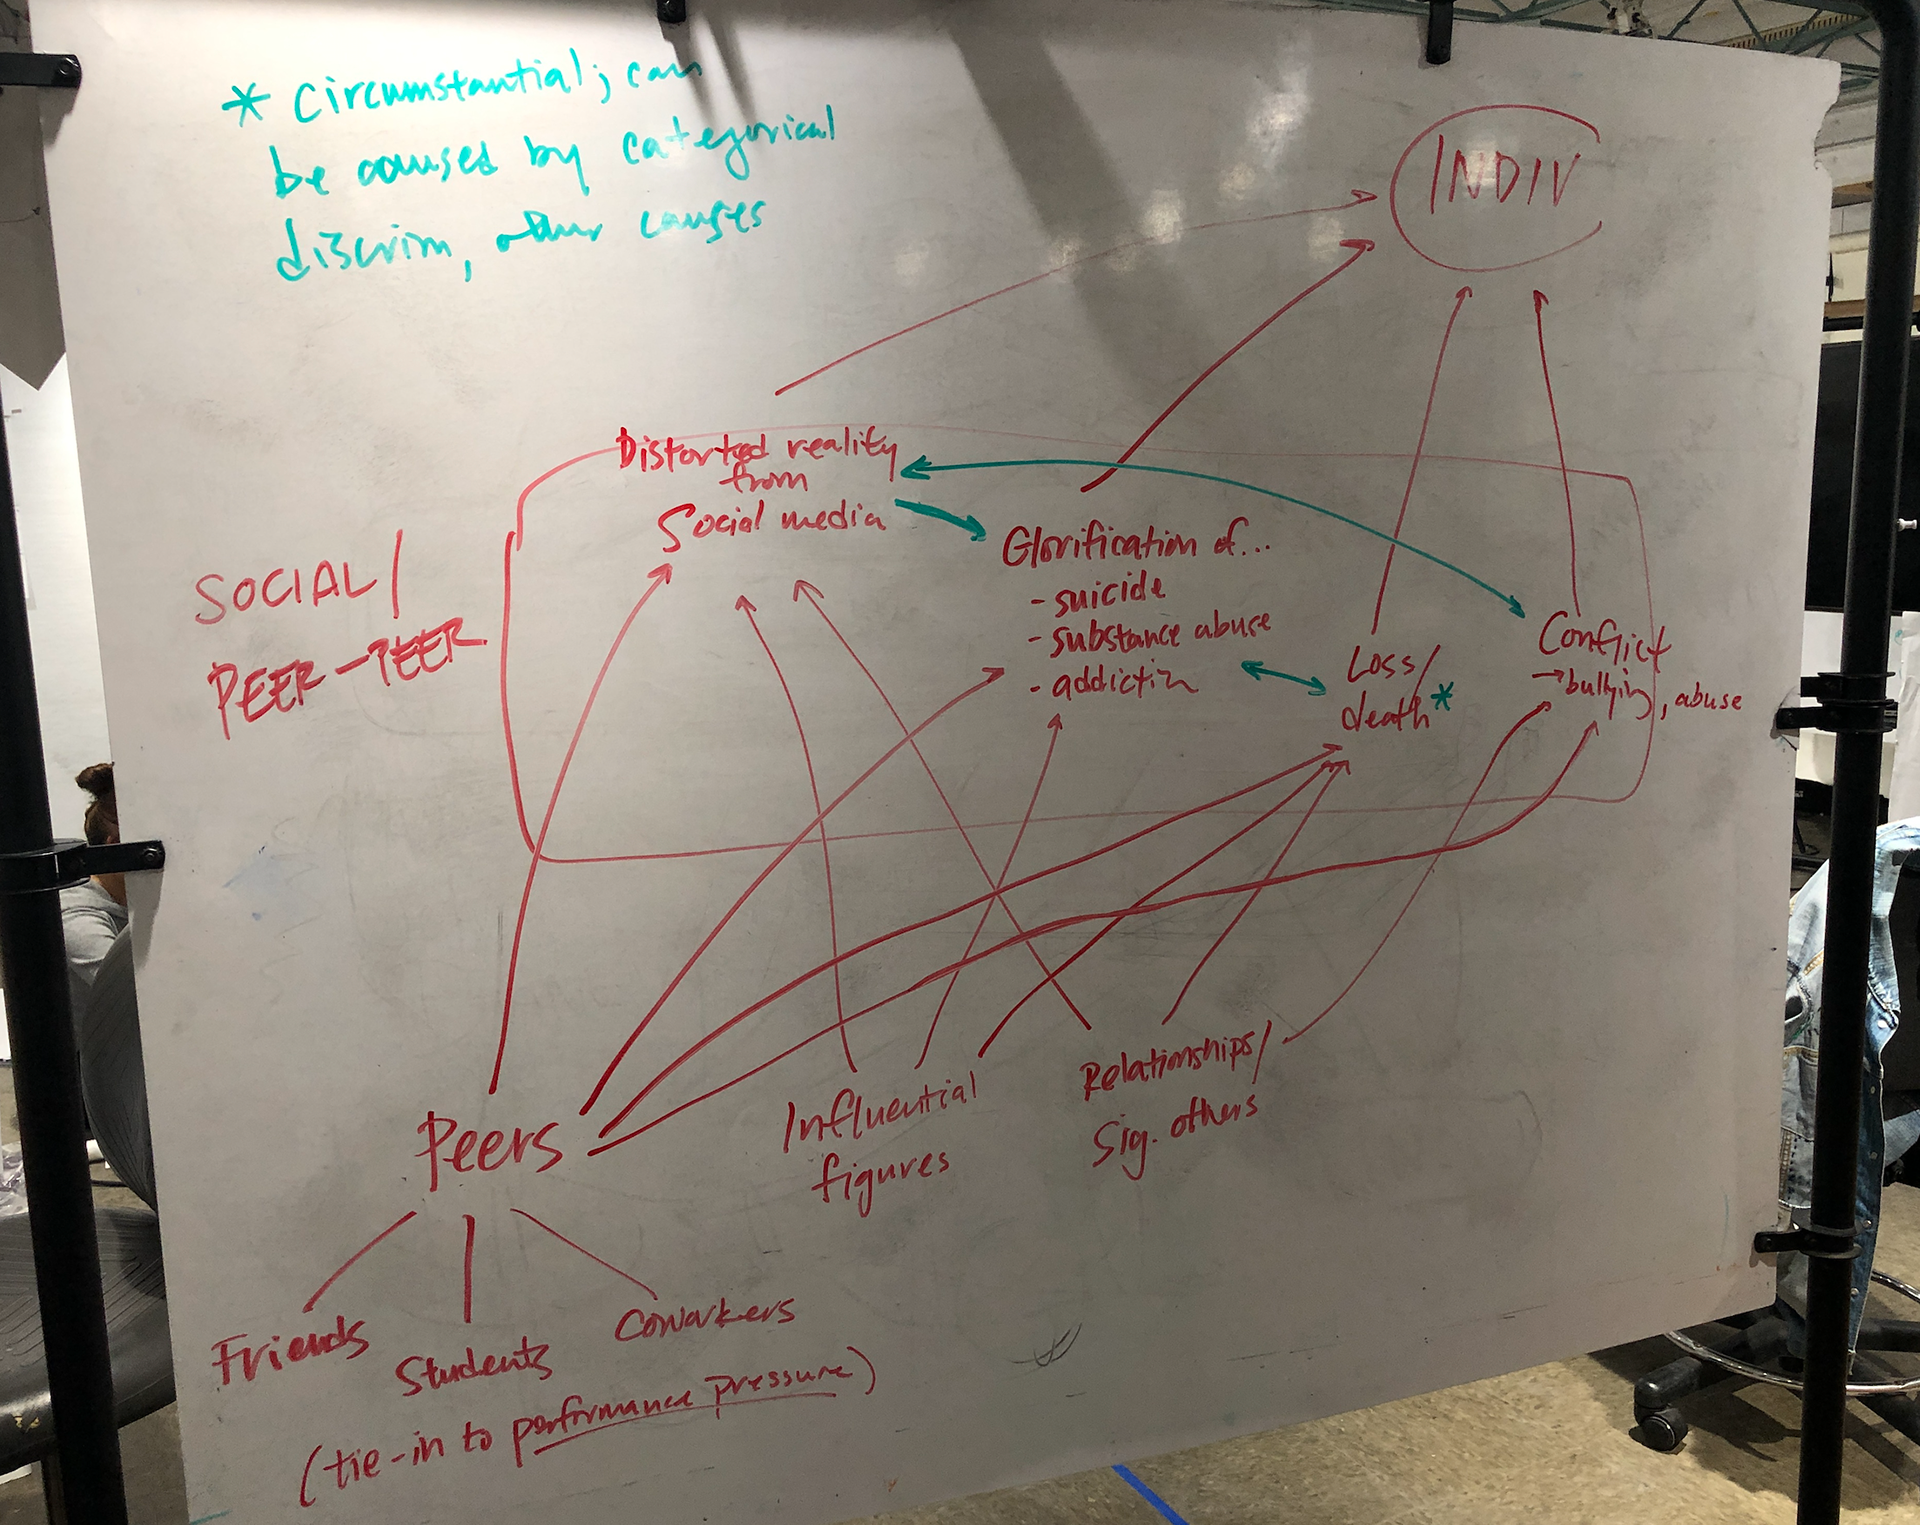 * circumstantial; can
be caused by categorical
discrim, other causes
INDIV
Distorted reality
from
Social media
SOCIAL/
PEER-PEER
Glorification of...
- suicide
- substance abuse
- addictin
Loss/
death*
Conflict
→ bullying, abuse
Peers
Influential
figures
Relationships/
Sig. others
Friends
Students
Coworkers
(tie-in to performance pressure)